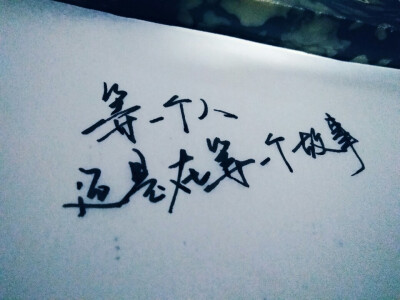 等一个人
还是在等一个故事